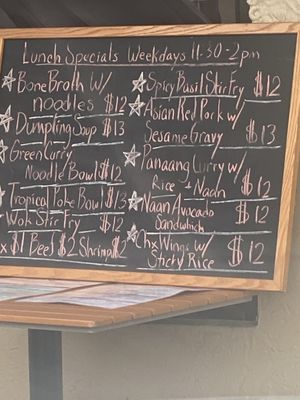 Lunch Specials Weekdays 11-30-2pm
Bone Broth w/
noodles $12
Dumpling Soup $13
Green Curry
Noodle Bowl $12
Tropical Poke Bowl $13
Wok Stir Fry $12
N Beef $2 Shrimp $2
Spicy Basil Stir Fry $12
Asian Red Pork w/
Sesame Gravy $13
Panaang Curry w/
Rice + Naan $12
Naan Avocado
Sandwhich $12
Chx Wings w/
Sticty Rice $12